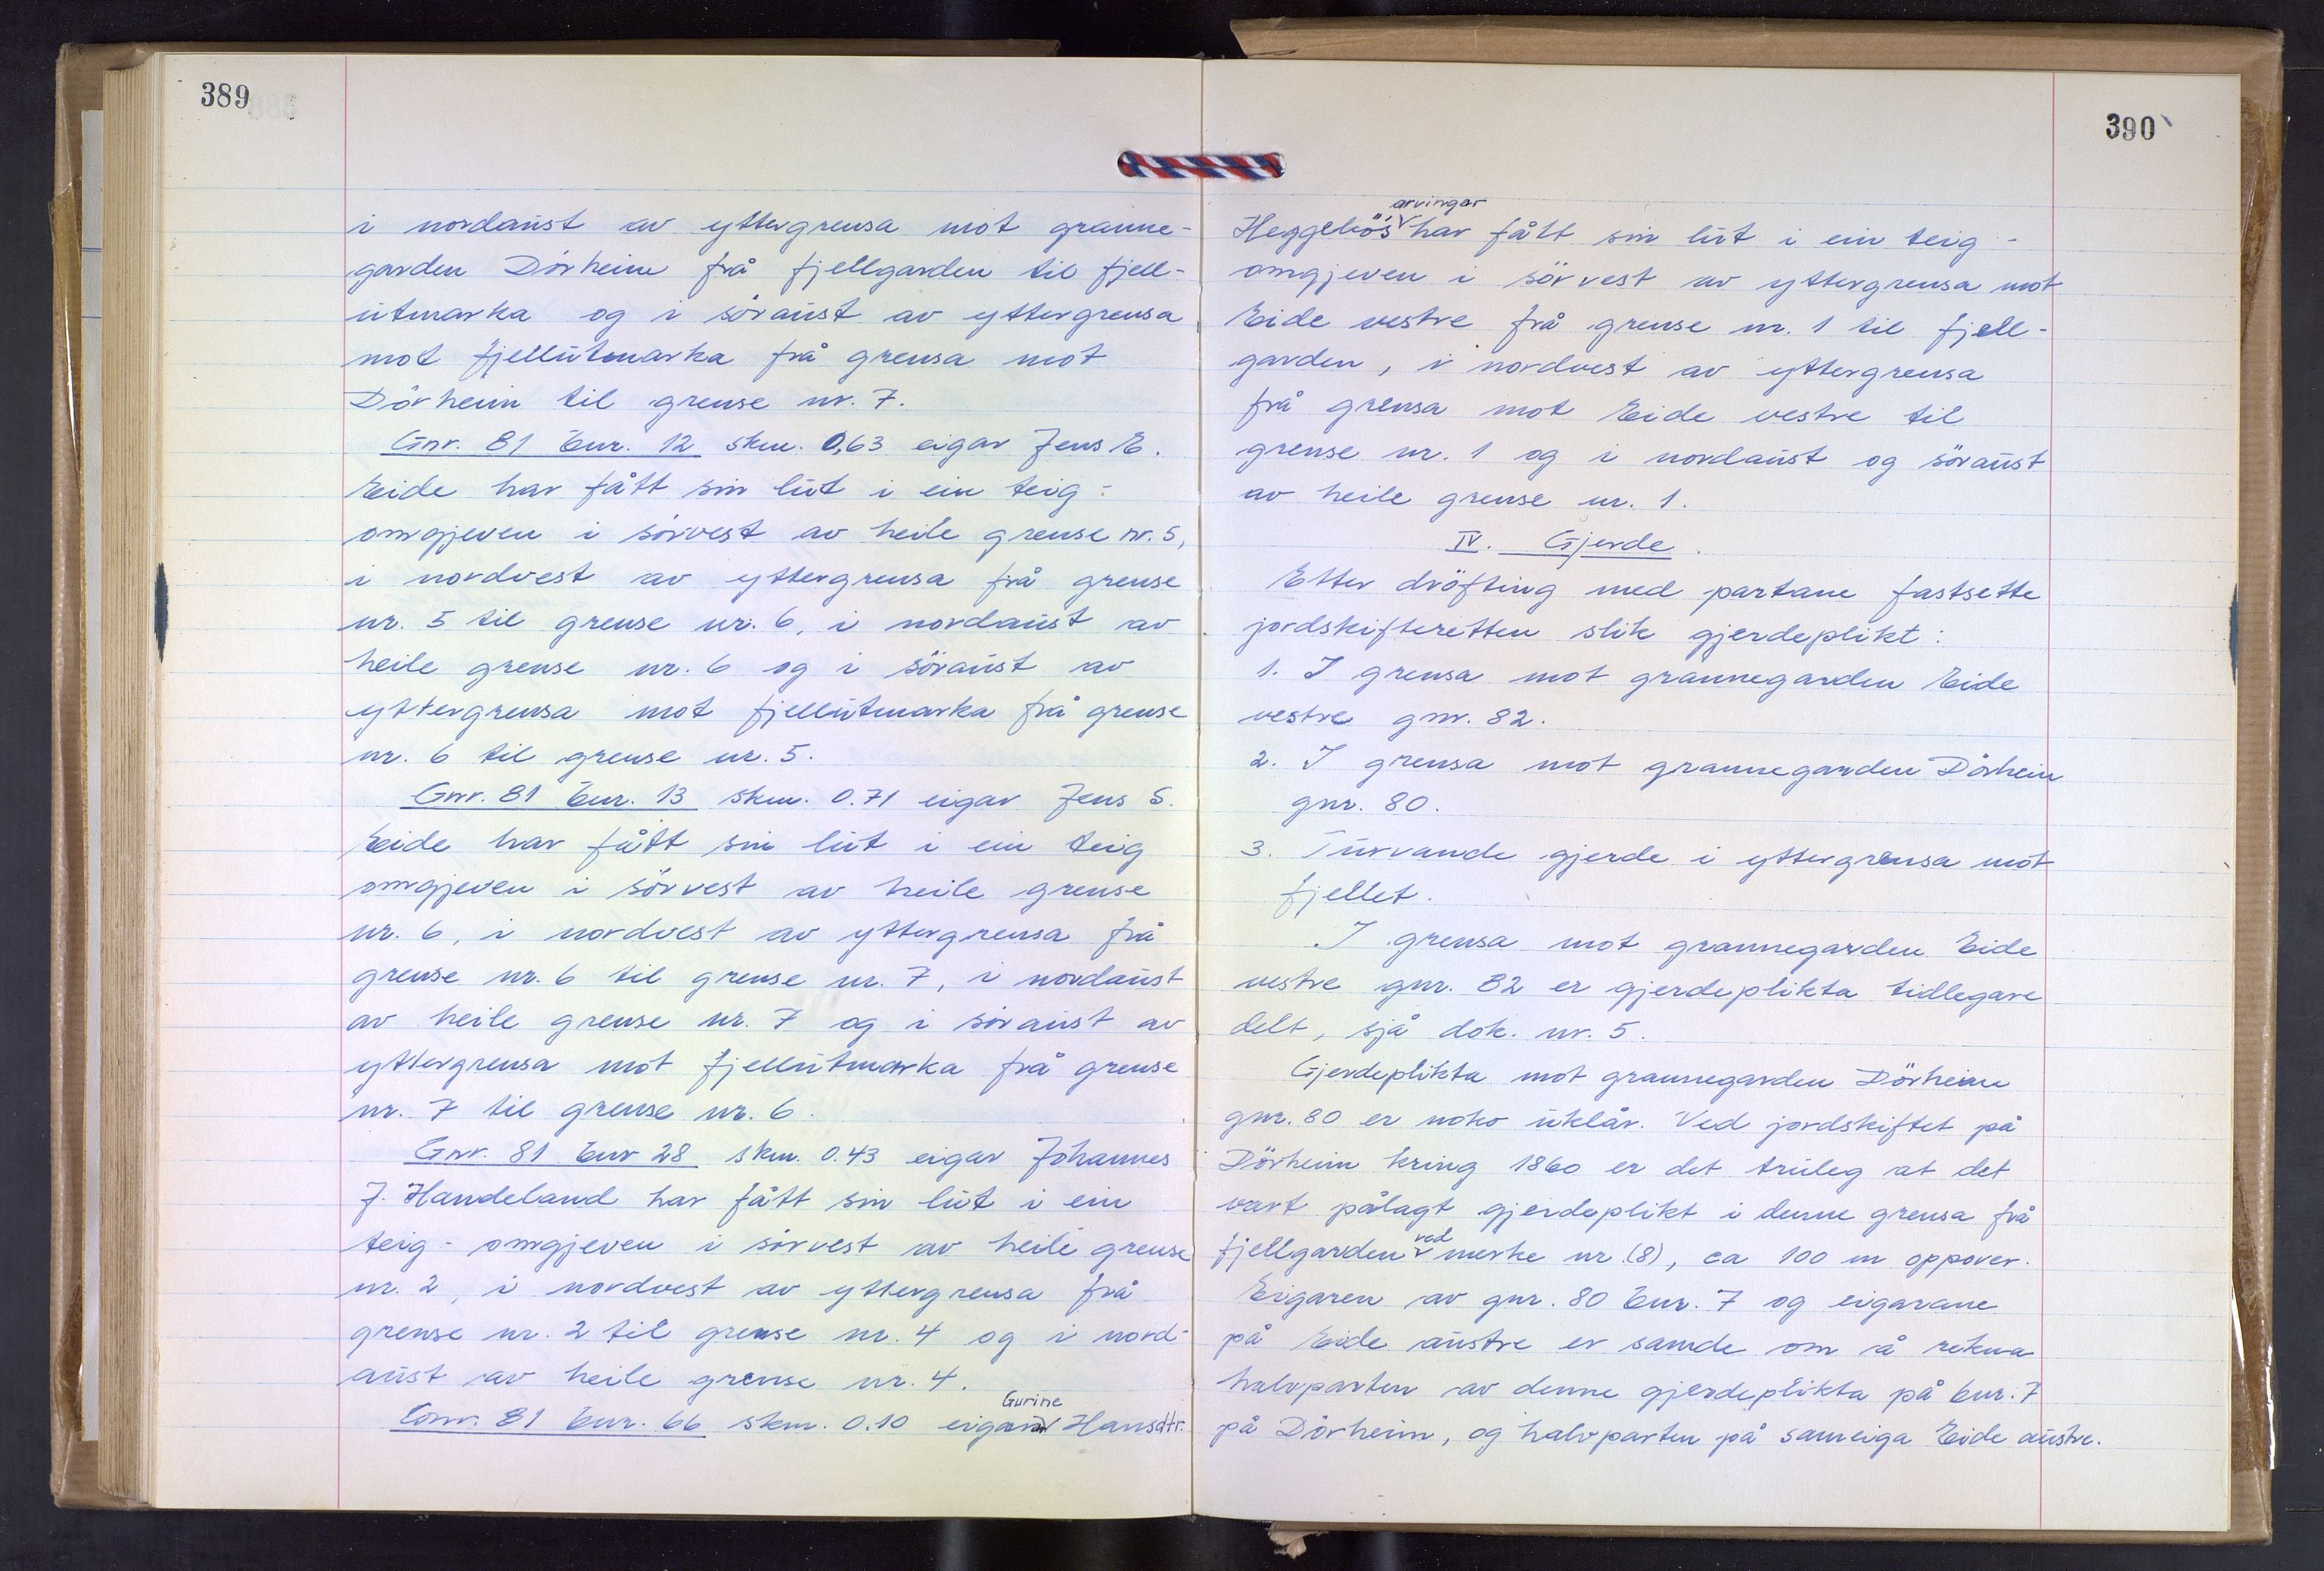 389
i nordaust av yttergrensa mot granne-
garden Dörheim frå fjellgarden til fjell-
utmarka og i söraust av yttergrensa
mot fjellutmarka frå grensa mot
Dörheim til grense nr. 7.
Gnr. 81 bnr. 12 skm. 0,63 eigar Jens E.
Eide har fått sin lut i ein teig -
omgjeven i sörvest av heile grense nr. 5,
i nordvest av yttergrensa frå grense
nr. 5 til grense nr. 6, i nordaust av
heile grense nr. 6 og i söraust av
yttergrensa mot fjellutmarka frå grense
nr. 6 til grense nr. 5.
Gnr. 81 bnr. 13 skm. 0.71 eigar Jens S.
Eide har fått sin lut i ein teig
omgjeven i sörvest av heile grense
nr. 6, i nordvest av yttergrensa frå
grense nr. 6 til grense nr. 7, i nordaust
av heile grense nr. 7 og i söraust av
yttergrensa mot fjellutmarka frå grense
nr. 7 til grense nr. 6.
Gnr. 81 bnr 28 skm. 0.43 eigar Johannes
J. Handeland har fått sin lut i ein
teig - omgjeven i sörvest av heile grense
nr. 2, i nordvest av yttergrensa frå
grense nr. 2 til grense nr. 4 og i nord-
aust av heile grense nr. 4.
Gurine
Gnr. 81 bnr. 66 skm. 0.10 Hansdtr.
390
arvingar
Heggebös har fått sin lut i ein teig -
omgjeven i sörvest av yttergrensa mot
Eide vestre frå grense nr. 1 til fjell-
garden, i nordvest av yttergrensa
frå grensa mot Eide vestre til
grense nr. 1 og i nordaust og söraust
av heile grense nr. 1.
IV. Gjerde.
Etter dröfting med partane fastsette
jordskifteretten slik gjerdeplikt:
1. I grensa mot grannegarden Eide
vestre gnr. 82.
2. I grensa mot grannegarden Dörheim
gnr. 80.
3. Turvande gjerde i yttergrensa mot
fjellet.
I grensa mot grannegarden Eide
vestre gnr. 82 er gjerdeplikta tidlegare
delt, sjå dok. nr. 5.
Gjerdeplikta mot grannegarden Dörheim
gnr. 80 er noko uklår. Ved jordskiftet på
Dörheim kring 1860 er det truleg at det
vart pålagt gjerdeplikt i denne grensa frå
ved
fjellgarden merke nr. (8), ca 100 m oppover.
Eigaren av gnr. 80 bnr. 7 og eigarane
på Eide austre er samde om å rekna
halvparten av denne gjerdeplikta på bnr. 7
på Dörheim, og halvparten på sameiga Eide austre.